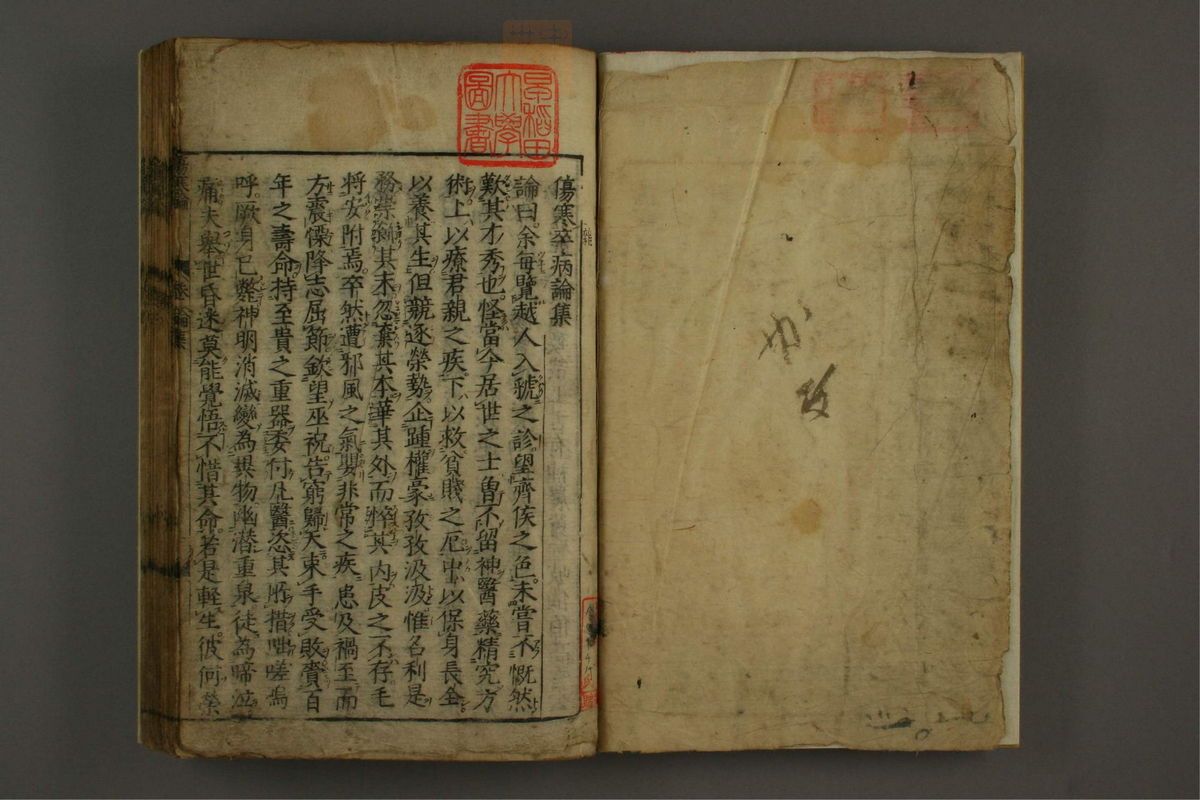 早稻田
大學
圖書
傷寒卒病論集
論曰余每覽越人入虢之診望齊侯之色未嘗不慨然
歎其才秀也怪當今居世之士曾不留神醫藥精究方
術上以療君親之疾下以救貧賤之厄中以保身長全
以養其生但競逐榮勢企踵權豪孜孜汲汲惟名利是
務崇飾其末忽棄其本華其外而悴其内皮之不存毛
將安附焉卒然遭邪風之氣嬰非常之疾患及禍至而
方震慄降志屈節欽望巫祝告窮歸天束手受敗賫百
年之壽命持至貴之重器委付凡醫恣其所措咄嗟嗚
呼厥身已斃神明消滅變為異物幽潛重泉徒為啼泣
痛夫舉世昏迷莫能覺悟不惜其命若是輕生彼何榮